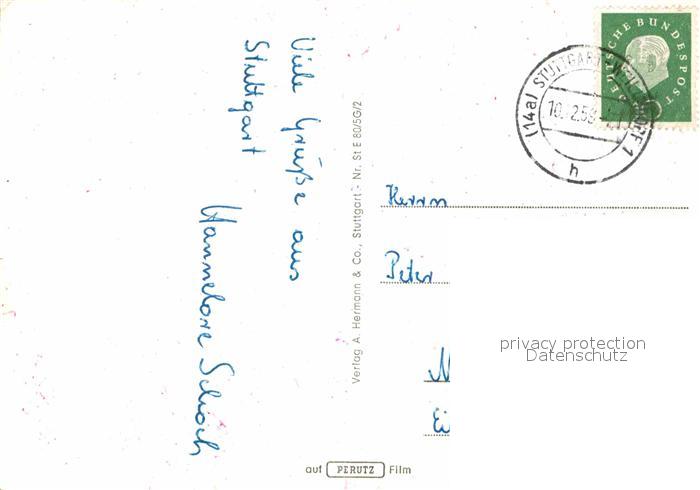 Viele Grüße aus
Stuttgart
Hannelore Schoch
Verlag A. Hermann & Co., Stuttgart - Nr. St E 80/5G/2
DEUTSCHE BUNDESPOST
(14a) STUTTGART
h
Herrn
Peter
privacy protection
Datenschutz
auf PERUTZ Film